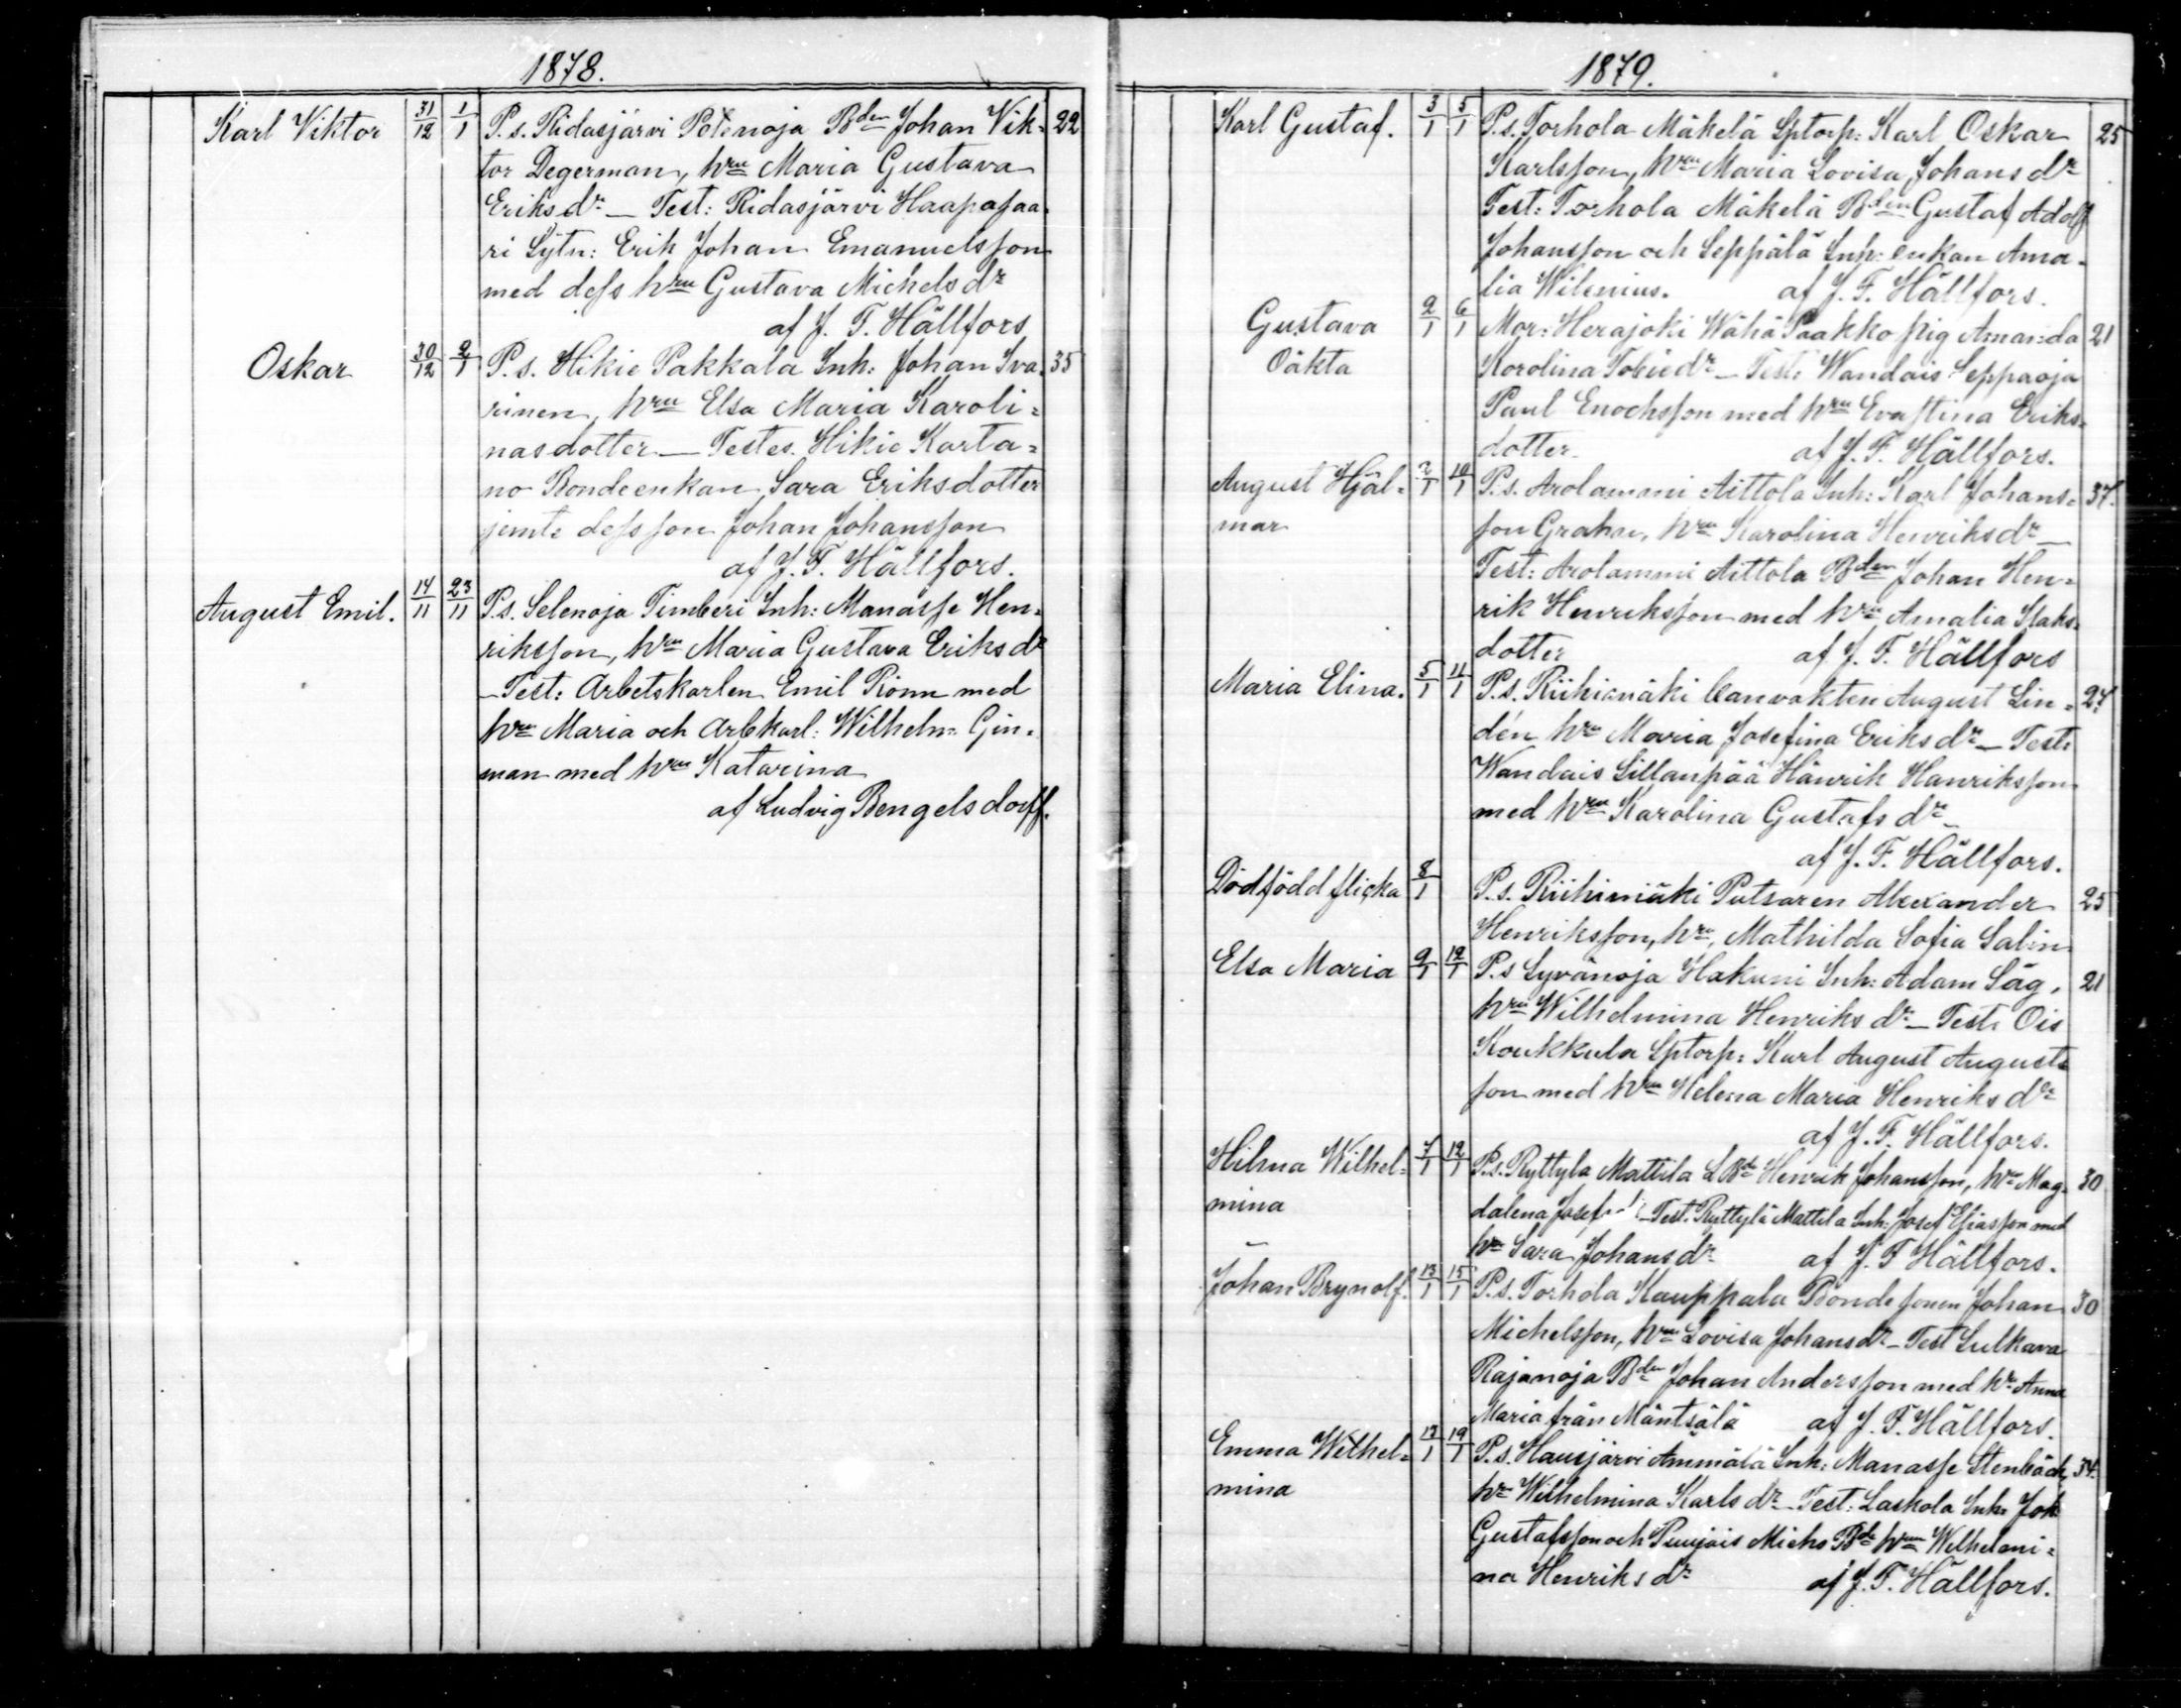 1878.
Karl Viktor 31/12 1/1 P. s. Ridasjärvi Potinoja Bden Johan Vik= 22
tor Degerman, hru Maria Gustava
Eriksdr — Test: Ridasjärvi Haapasaa=
ri Sytn: Erik Johan Emanuelsson
med dess hru Gustava Michelsdr
af J. F. Hällfors
Oskar 30/12 2/1 P. s. Hikie Pakkala Inh: Johan Iva= 35
rinen, hru Elsa Maria Karoli=
nasdotter — Testes. Hikie Karta=
no Bondeenkan Sara Eriksdotter
jemte dess son Johan Johansson
af J. F. Hällfors.
August Emil. 14/11 23/11 P.s. Selenoja Timberi Inh: Manasse Hen=
riksson, hru Maria Gustava Eriksdr
— Test: Arbetskarlen Emil Rönn med
hru Maria och Arbkarl: Wilhelm Gin=
man med hru Katarina
af Ludvig Bengelsdorff.
1879.
Karl Gustaf. 3/1 5/1 P.s. Torhola Mäkelä Sptorp: Karl Oskar 25
Karlsson, hru Maria Lovisa Johansdr
Test: Torhola Mäkelä Bden Gustaf Adolf
Johansson och Seppälä Inh: enkan Ama=
lia Wilenius. af J. F. Hällfors.
Gustava 2/1 6/1 Mor: Herajoki Wähä Paakko pig Amanda 21
Oäkta Karolina Tobiedr — Test: Wandais Seppäoja
Paul Enochsson med hru Evastina Eriks=
dotter. af J. F. Hällfors.
August Hjäl= 7/1 10/1 P.s. Arolammi Aittola Inh: Karl Johans= 37.
mar son Grahn, hru Karolina Henriksdr —
Test: Arolammi Aittola Bden Johan Hen=
rik Henriksson med hru Amalia Isaks=
dotter af J. F. Hällfors
Maria Elina. 5/1 11/1 P.s. Riihimäki Banvakten August Lin= 24
dén hru Maria Josefina Eriksdr — Test:
Wandais Sillanpää Hänrik Hanriksson
med hru Karolina Gustafsdr —
af J. F. Hällfors.
Dödfödd flicka 8/1 P.s. Riihimäki Putsaren Alexander 25
Henriksson, hru, Mathilda Sofia Salin
Elsa Maria 9/1 12/1 P.s Syvänoja Hakuni Inh: Adam Säg, 21
hru Wilhelmina Henriksdr — Test: Ois
Koukkula Sptorp: Karl August Augusts=
son med hru Helena Maria Henriksdr
af J. F. Hällfors.
Hilma Wilhel= 7/1 12/1 P.s. Ryttylä Mattila LBd Henrik Johansson, hru Mag= 30
mina dalena Josefsdr — Test: Ryttylä Mattila Inh: Josef Eliasson med
hru Sara Johansdr af J. F Hällfors.
Johan Brynolf. 13/1 15/1 P.s. Torhola Kauppala Bondesonen Johan 30
Michelsson, hru Lovisa Johansdr — Test Sulkava
Rajanoja Bden Johan Andersson med hru Anna
Maria från Mäntsälä af J. F. Hällfors.
Emma Wilhel= 17/1 19/1 P.s. Hausjärvi Ammälä Inh: Manasse Stenbäck, 34.
mina hru Wilhelmina Karlsdr — Test: Laskola Inh: Joh
Gustafsson och Puujais Micko Bde hru Wilhelmi=
na Henriksdr af J. F. Hällfors.